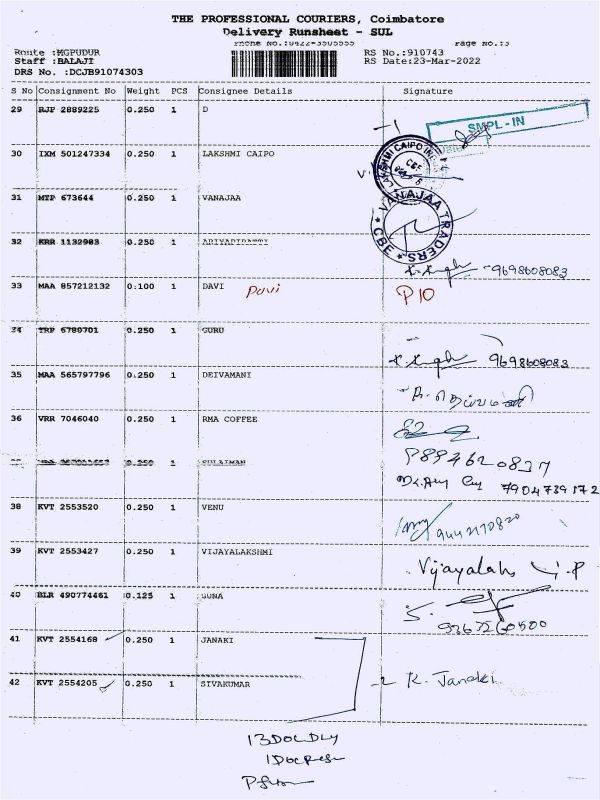 THE PROFESSIONAL COURIERS, Coimbatore
Delivery Runsheet - SUL
Phone No.:0422-3505555 Page No.:3
Route :MGPUDUR RS No.:910743
Staff :BALAJI RS Date:23-Mar-2022
DRS No. :DCJB91074303
S No Consignment No Weight PCS Consignee Details Signature
29 RJP 2889225 0.250 1 D
SMPL-IN
30 IXM 501247334 0.250 1 LAKSHMI CAIPO
LAKSHMI CAIPO
CBE
31 MTP 673644 0.250 1 VANAJAA
VANAJAA TRADERS
CBE
32 KRR 1132983 0.250 1 ARIVARIPATTI
9698608083
33 MAA 857212132 0.100 1 DAVI Pavi P10
34 TRP 6780701 0.250 1 GURU
9698608083
35 MAA 565797796 0.250 1 DEIVAMANI
தெய்வமணி
36 VRR 7046040 0.250 1 RMA COFFEE
0.250 1 SULAIMAN
P894620837
7904739172
38 KVT 2553520 0.250 1 VENU
39 KVT 2553427 0.250 1 VIJAYALAKSHMI
40 BLR 490774461 0.125 1 GUNA
41 KVT 2554168 0.250 1 JANAKI
42 KVT 2554205 0.250 1 SIVAKUMAR
K. Janaki
13DOCDLY